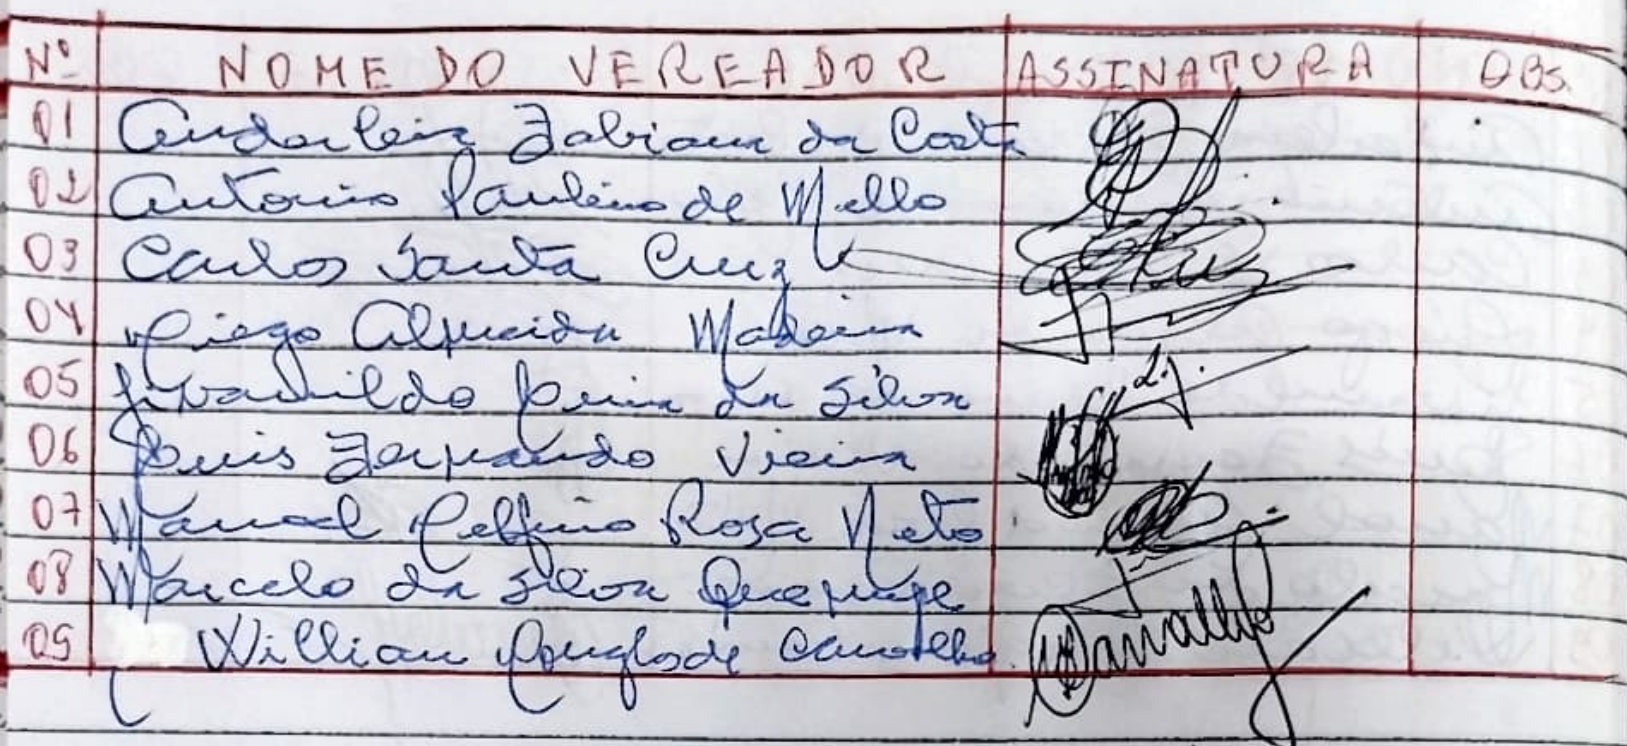 Nº NOME DO VEREADOR ASSINATURA OBS.
01 Anderleia Fabiana da Costa
02 Antonio Paulino de Mello
03 Carlos Santa Cruz
04 Diego Almeida Madeira
05 da Silva
06 Luis Fernando Vieira
07 Manoel Delfino Rosa Neto
08 Marcelo da Silva
09 Willian Douglas de Carvalho